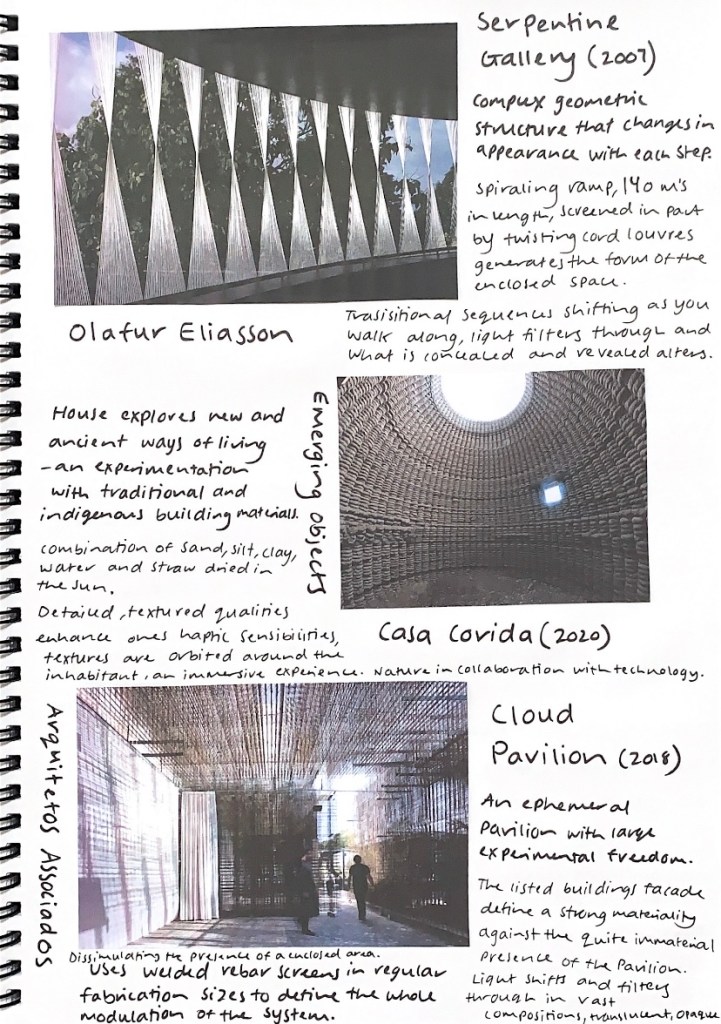 Serpentine
Gallery (2007)
Complex geometric
structure that changes in
appearance with each step.
Spiraling ramp, 140 m's
in length, screened in part
by twisting cord louvres
generates the form of the
enclosed space.
Trasisitional sequences shifting as you
walk along, light filters through and
what is concealed and revealed alters.
Olafur Eliasson
House explores new and
ancient ways of living
- an experimentation
with traditional and
indigenous building materials.
Combination of sand, silt, clay,
water and straw dried in
the sun.
Detailed, textured qualities
enhance ones haptic sensibilities,
textures are orbited around the
inhabitant, an immersive experience. Nature in collaboration with technology.
Emerging Objects
Casa Covida (2020)
Arquitetos Associados
Cloud
Pavilion (2018)
An ephemeral
Pavilion with large
experimental freedom.
The listed buildings facade
define a strong materiality
against the quite immaterial
presence of the Pavilion.
Light shifts and filters
through in vast
compositions, translucent, opaque
Dissimulating the presence of a enclosed area.
Uses welded rebar screens in regular
fabrication sizes to define the whole
modulation of the system.